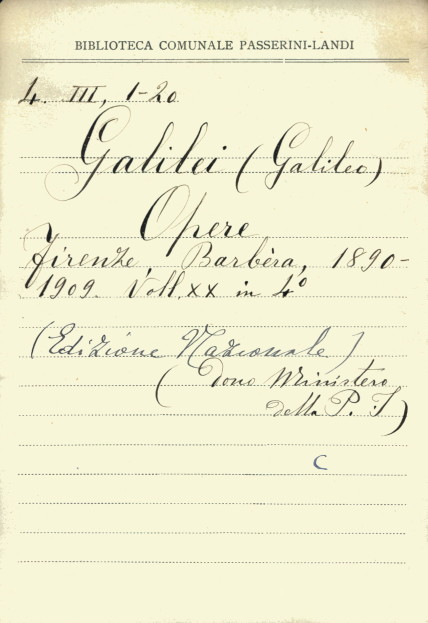 BIBLIOTECA COMUNALE PASSERINI-LANDI
4. III, 1-20
Galilei (Galileo)
Opere
Firenze, Barbèra, 1890-
1909. Voll. XX in 4°
(Edizione Nazionale)
(Dono Ministero
della P. I)
C